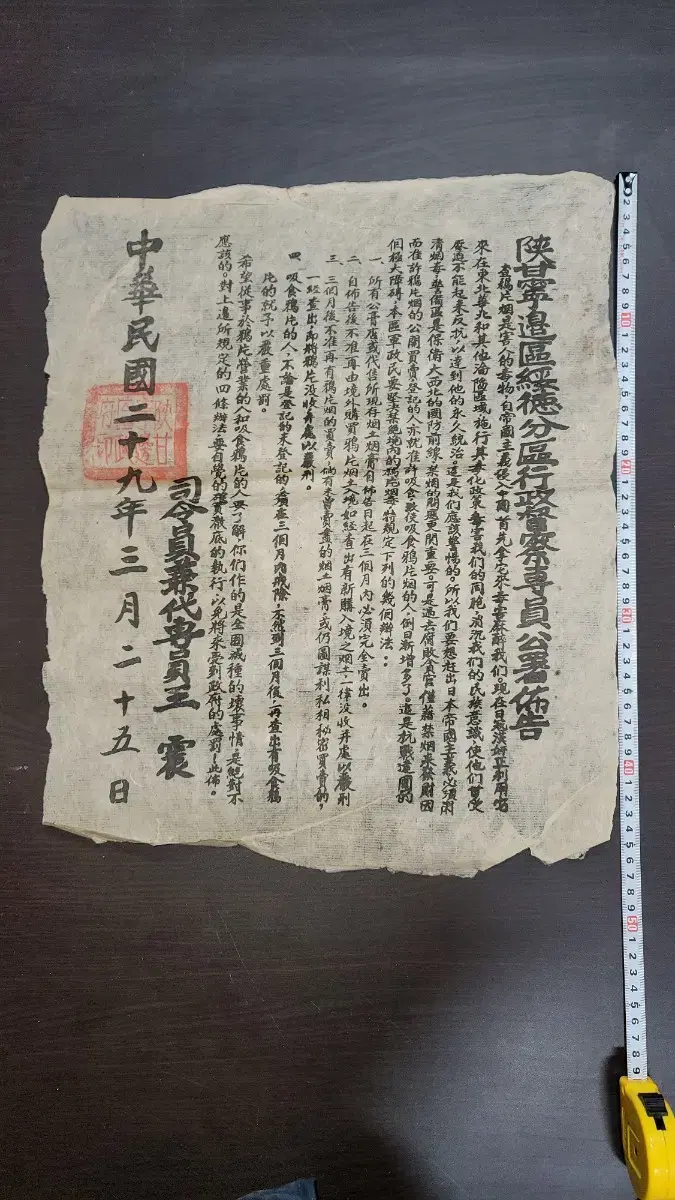 陝甘寧邊區綏德分區行政督察專員公署佈告
查鴉片烟是害人的毒物，自帝國主義侵入中國，首先拿它來毒害麻醉我們。現在日寇漢奸正利用它
來在東北華北和其他淪陷區域，施行其毒化政策，毒害我們的同胞，消沉我們的民族意識，使他們甘受
壓迫不能起來反抗，以達到他的永久統治，這是我們應該警惕的。所以我們要想赶出日本帝國主義必須肅
清烟毒，警備區是保衛大西北的國防前線，禁烟的問題更関重要。可是過去腐敗貪官僅藉禁烟來發財因
而准許鴉片烟的公開買賣登記的人亦就准許吸食，致使吸食鴉片烟的人倒日新增多了。這是抗戰建國的
個極大障碍，本區軍政民要堅決禁絕境內的鴉片烟毒，特規定下列的幾個辦法：
一、所有公膏店或代售所現存烟土烟膏自佈告日起在三個月內必須完全賣出。
二、自佈告後不准再由境外購買鴉片烟土入境如經查出有新購入境之烟土，一律沒收并處以嚴刑
三、三個月後不准再有鴉片烟的買賣，倘有未曾賣盡的烟土烟膏，或仍圖謀利私相秘密買賣的，
一經查出，即將鴉片沒收并處以嚴刑。
四、吸食鴉片的人，不論是登記的未登記的必須在三個月內戒除，不然到三個月後，再查出有吸食鴉
片的就予以嚴重處罰。
希望從事於鴉片營業的人和吸食鴉片的人要了解，你們作的是亡國滅種的壞事情，是絕對不
應該的。對上邊所規定的四條辦法要自覺的確實徹底的執行，以免將來受到政府的處罰！此佈。
司令員兼代專員王震
中華民國二十九年三月二十五日